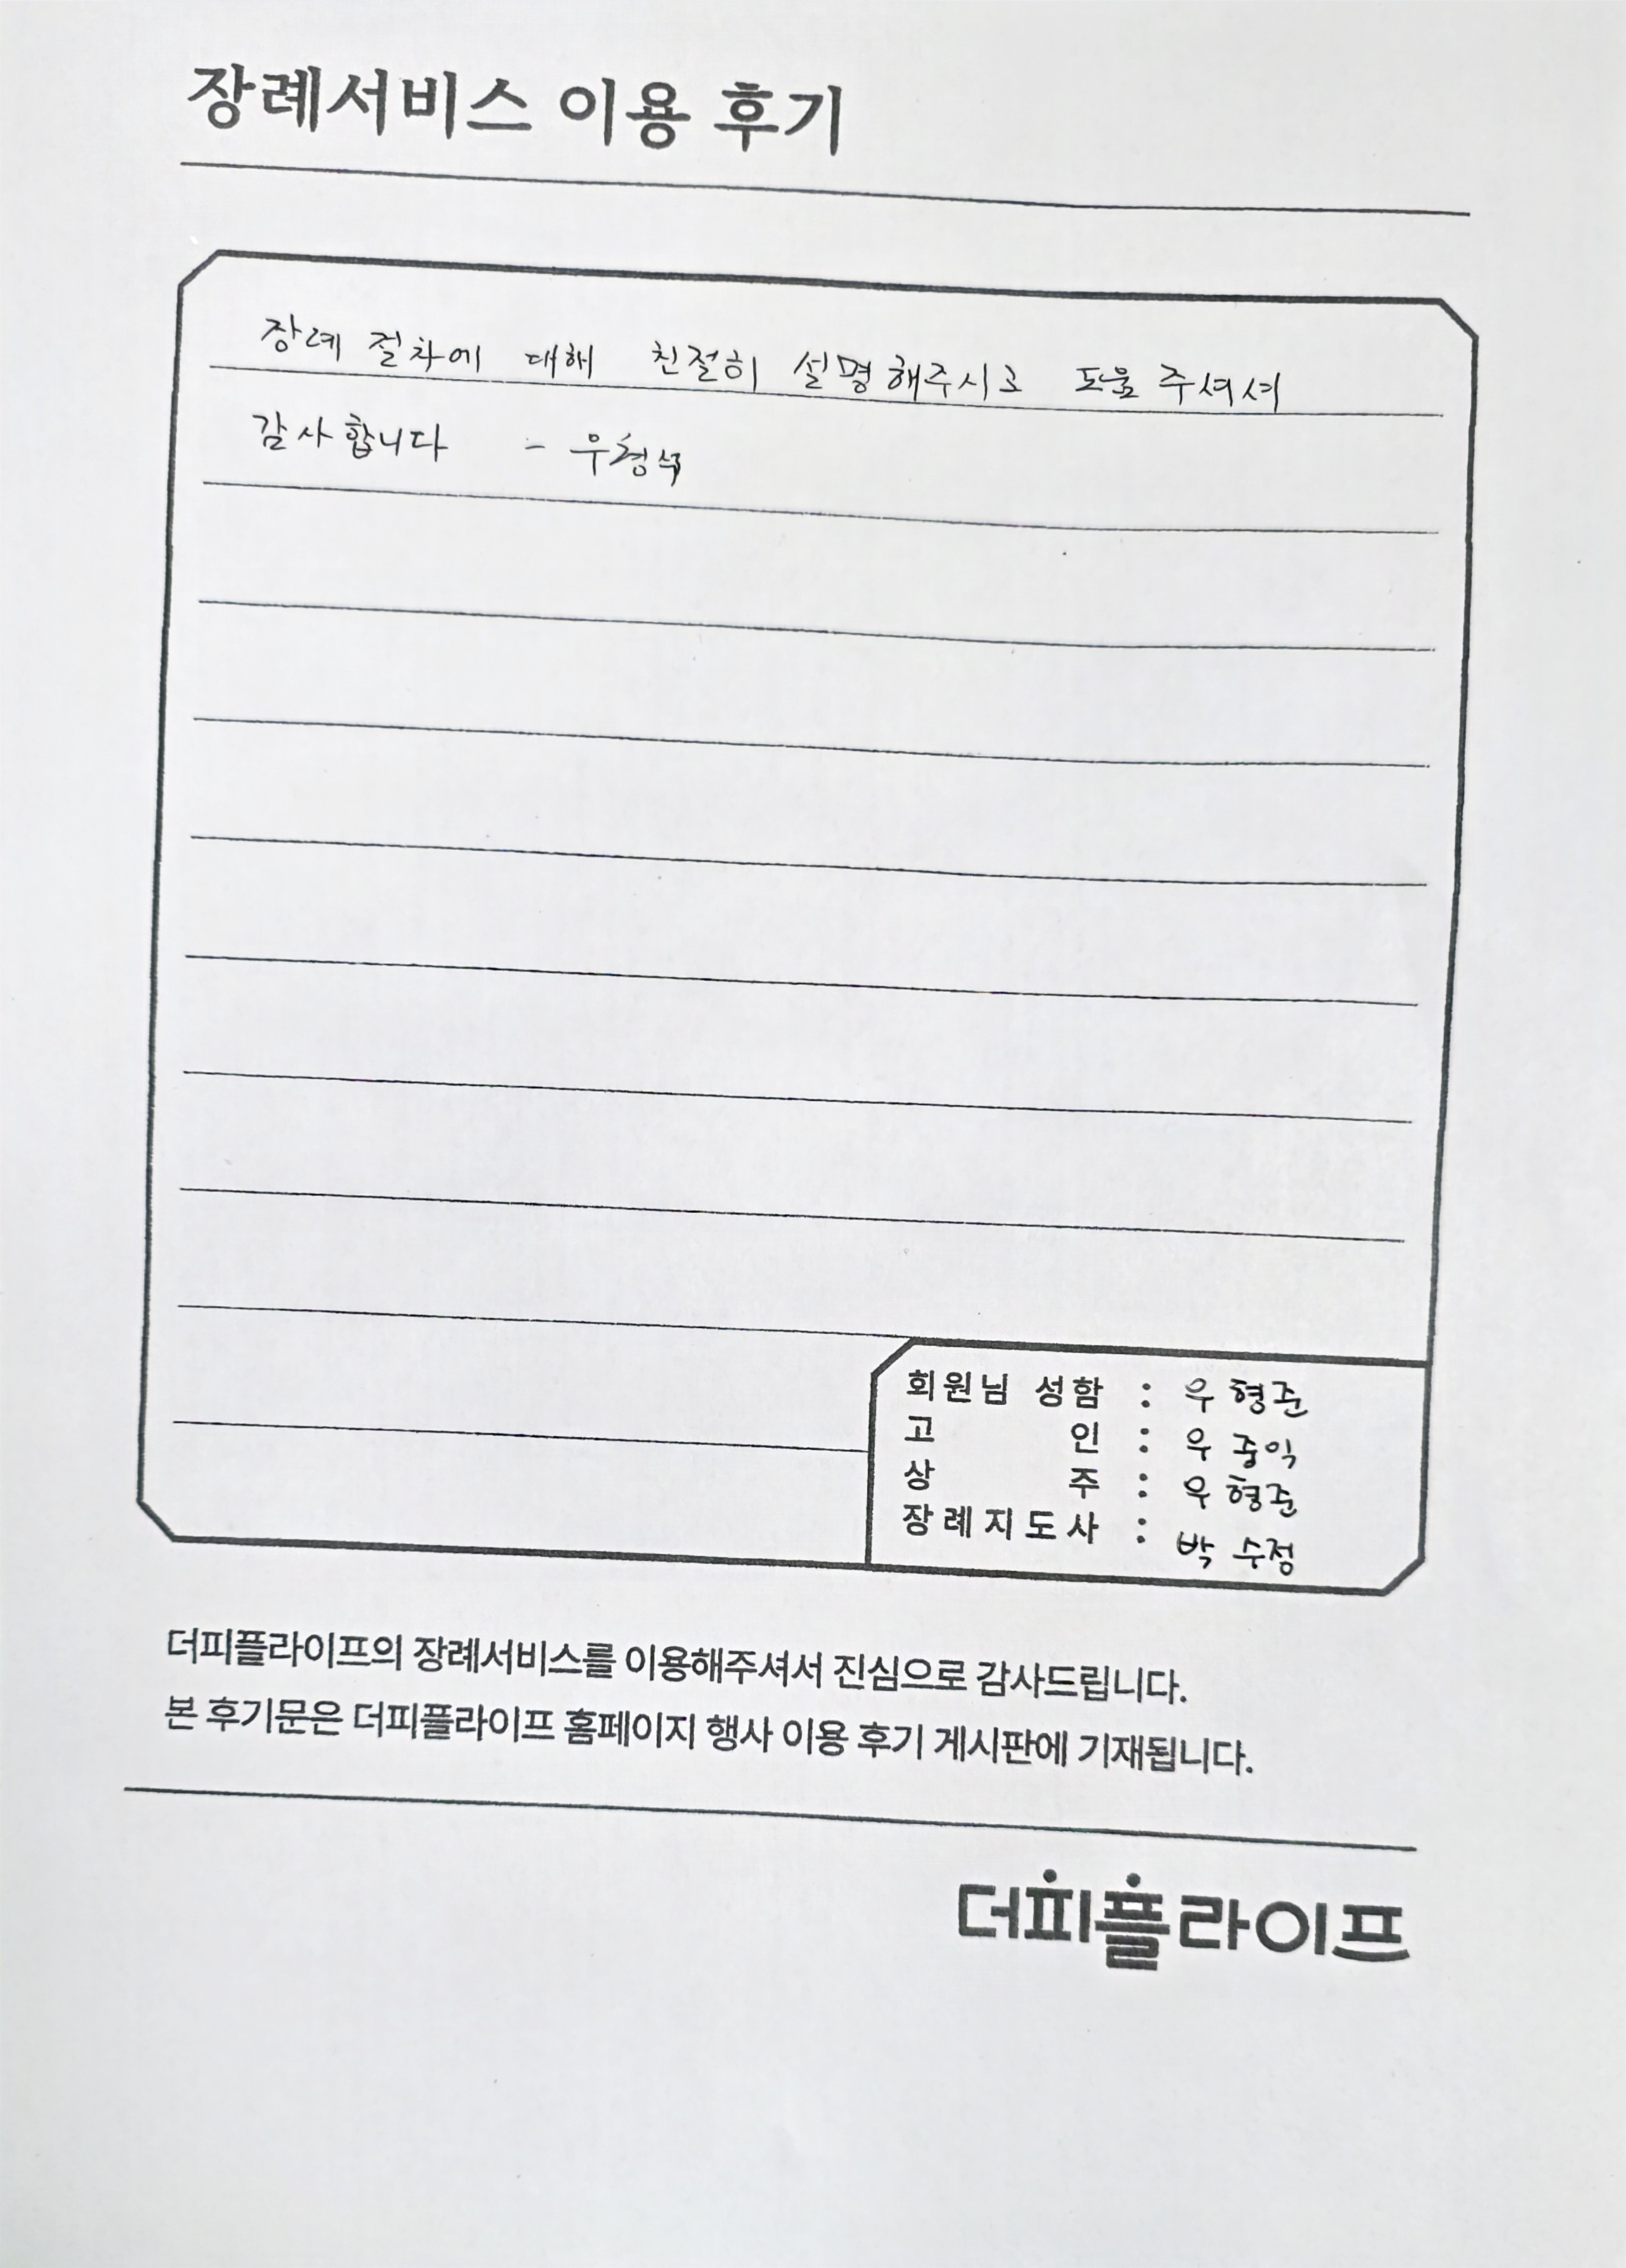 장례서비스 이용 후기
장례 절차에 대해 친절히 설명해주시고 도움 주셔서
감사합니다 - 우형석
회원님 성함 : 우형준
고 인 : 우중익
상 주 : 우형준
장례지도사 : 박수정
더피플라이프의 장례서비스를 이용해주셔서 진심으로 감사드립니다.
본 후기문은 더피플라이프 홈페이지 행사 이용 후기 게시판에 기재됩니다.
더피플라이프